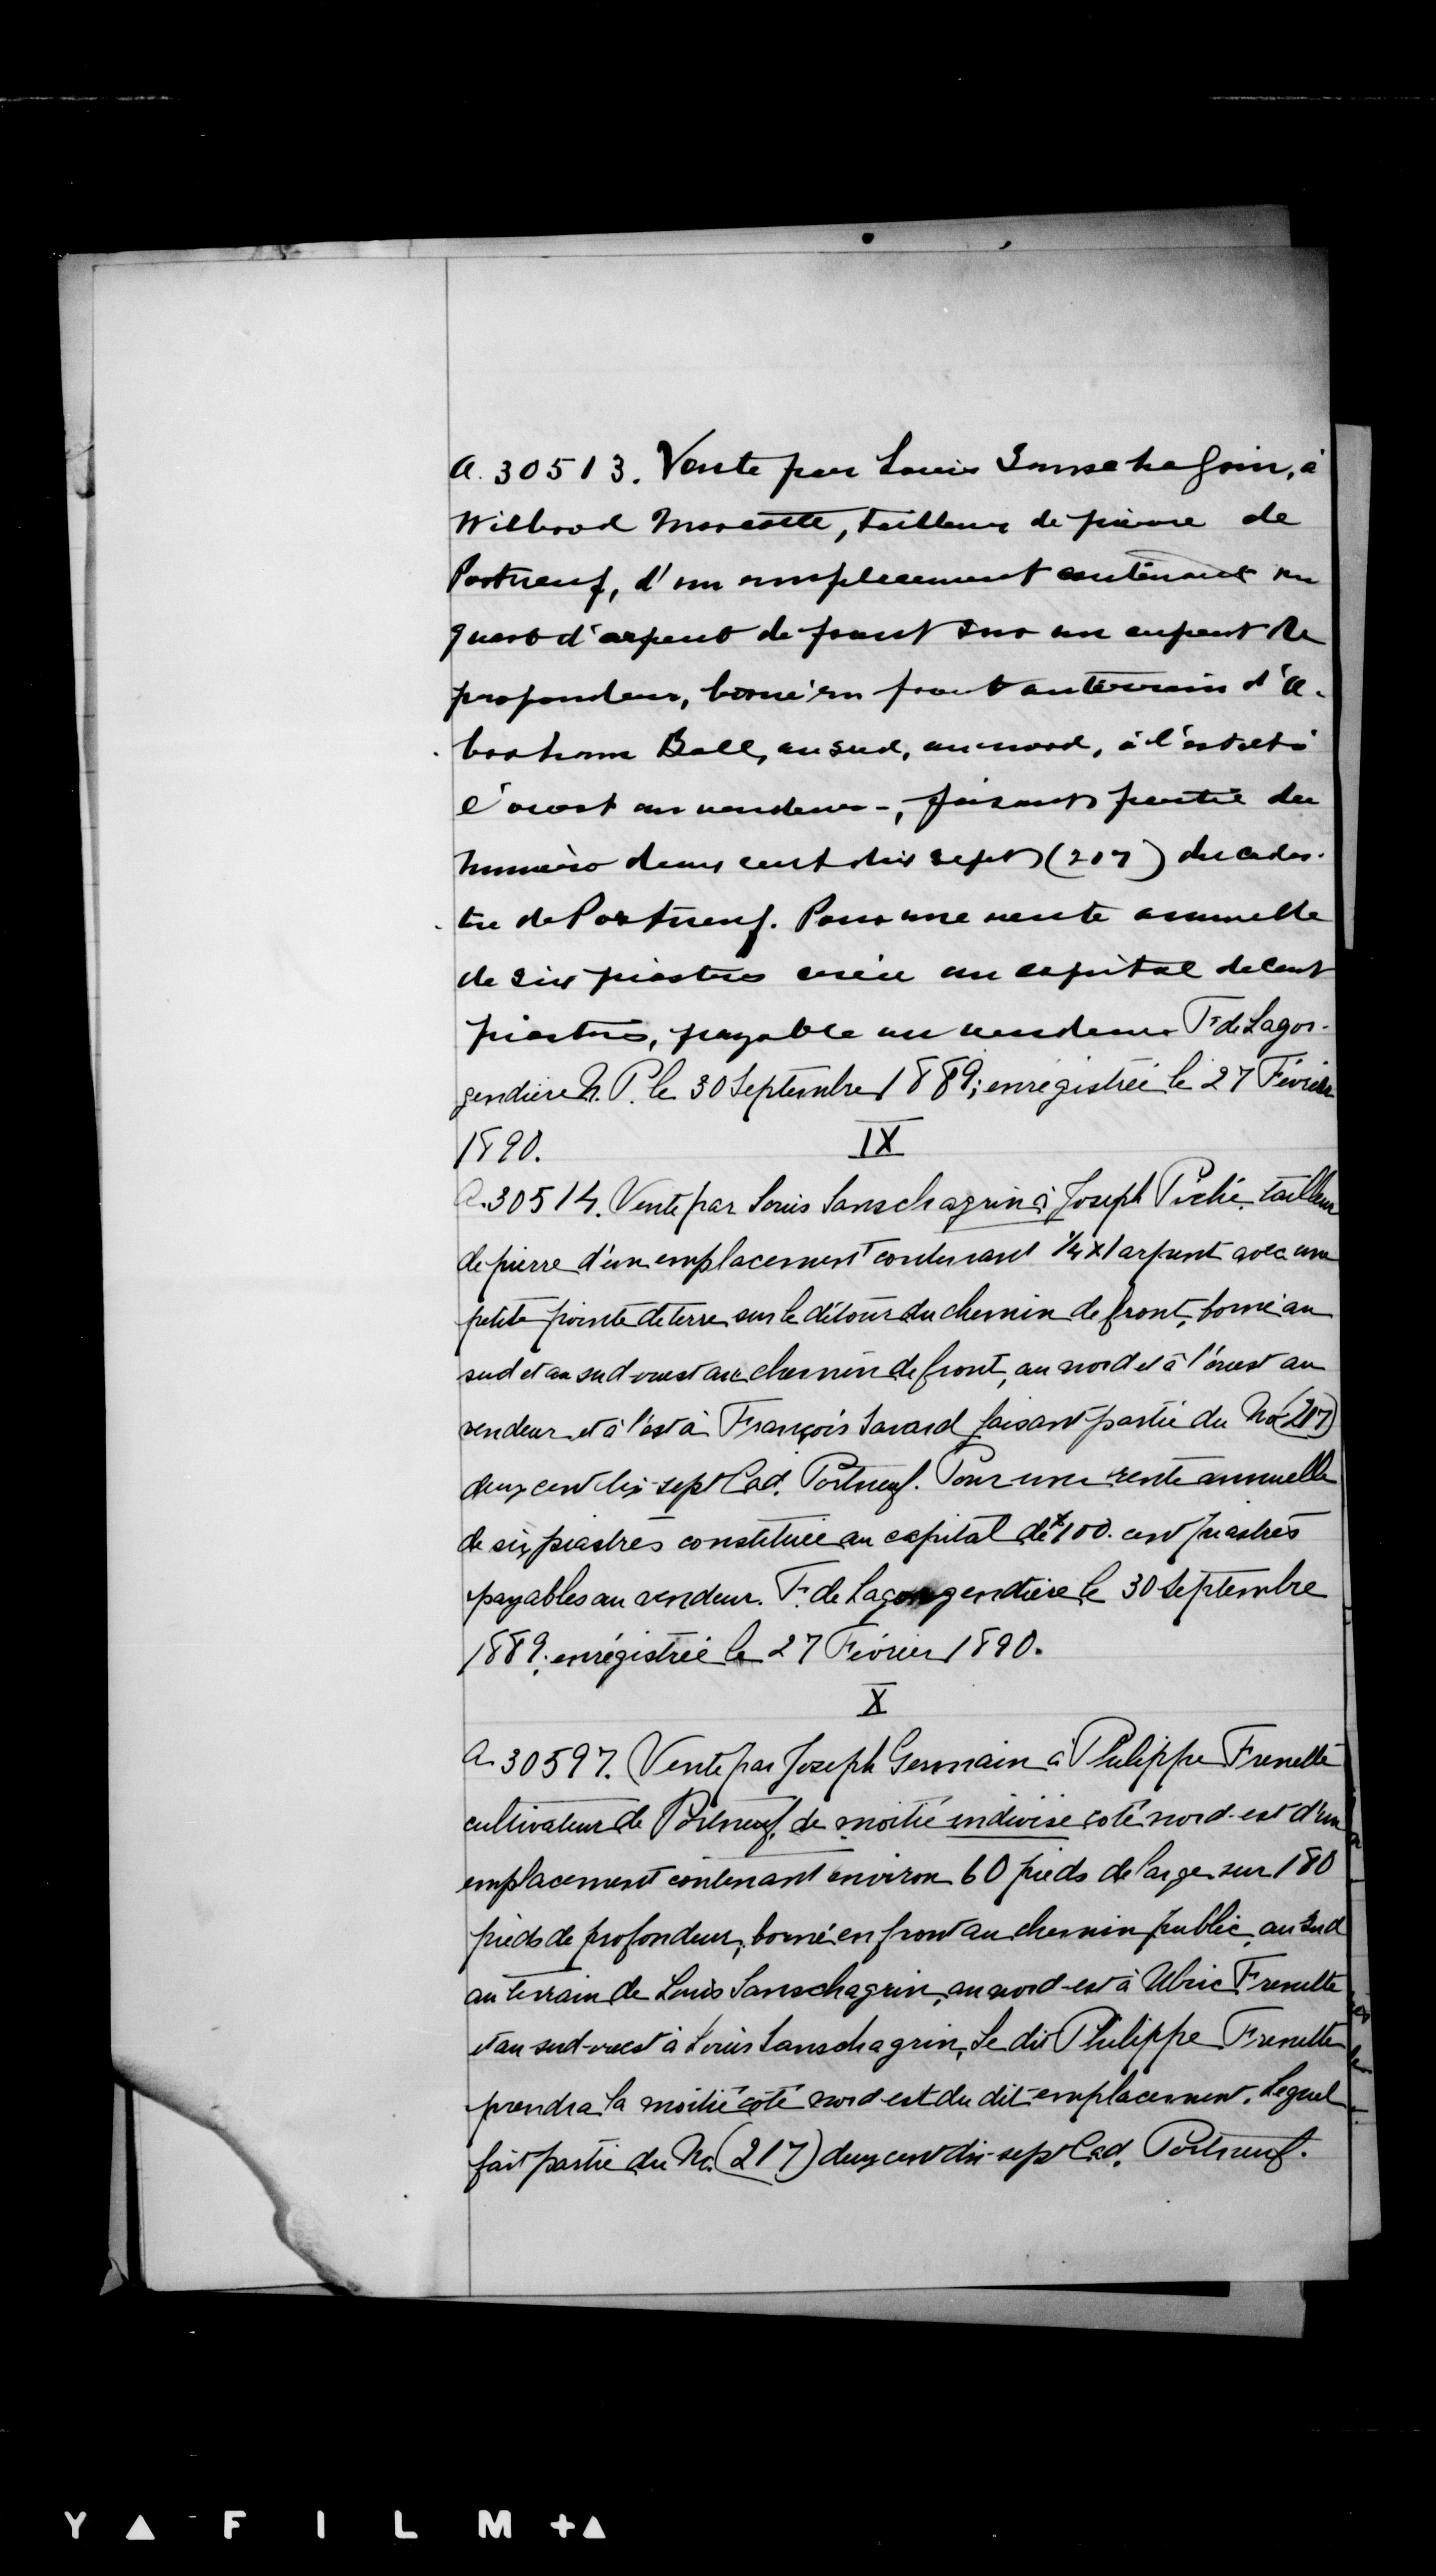 A. 30513. Vente par Louis Sanschagrin, à
Wilbrod Marcotte, tailleur de pierre de
Portneuf, d'un emplacement contenant un
quart d'arpent de front sur un arpent de
profondeur, borné en front au terrain d'A-
braham Ball, au sud, au nord, à l'est et à
l'ouest au vendeur-, faisant partie du
numéro deux cent dix sept (217) du cadas-
tre de Portneuf. Pour une rente annuelle
de six piastres créée au capital de cent
piastres, payable au vendeur F. de Lagor-
gendière N. P. le 30 Septembre 1889; enregistrée le 27 Février
1890.
IX
A. 30514. Vente par Louis Sanschagrin à Joseph Piché, tailleur
de pierre d'un emplacement contenant 1/4 x 1 arpent avec une
petite pointe de terre sur le détour du chemin de front, borné au
sud et au sud-ouest au chemin de front, au nord et à l'ouest au
vendeur et à l'est à François Savard faisant partie du No (217)
deux cent dix-sept Cad. Portneuf. Pour une rente annuelle
de six piastres constituée au capital de $100. cent piastres
payables au vendeur. F. de Lagorgendière le 30 Septembre
1889; enrégistrée le 27 Février 1890.
X
A. 30597. Vente par Joseph Germain à Philippe Frenette
cultivateur de Portneuf, de moitié indivise coté nord-est d'un
emplacement contenant environ 60 pieds de large sur 180
pieds de profondeur, borné en front au chemin public, au sud
au terrain de Louis Sanschagrin, au nord-est à Ulric Frenette
et au sud-ouest à Louis Sanschagrin, Le dit Philippe Frenette
prendra la moitié coté nord-est du dit emplacement, lequel
fait partie du No. (217) deux cent dix-sept Cad. Portneuf.
Y ▲ F I L M + ▲